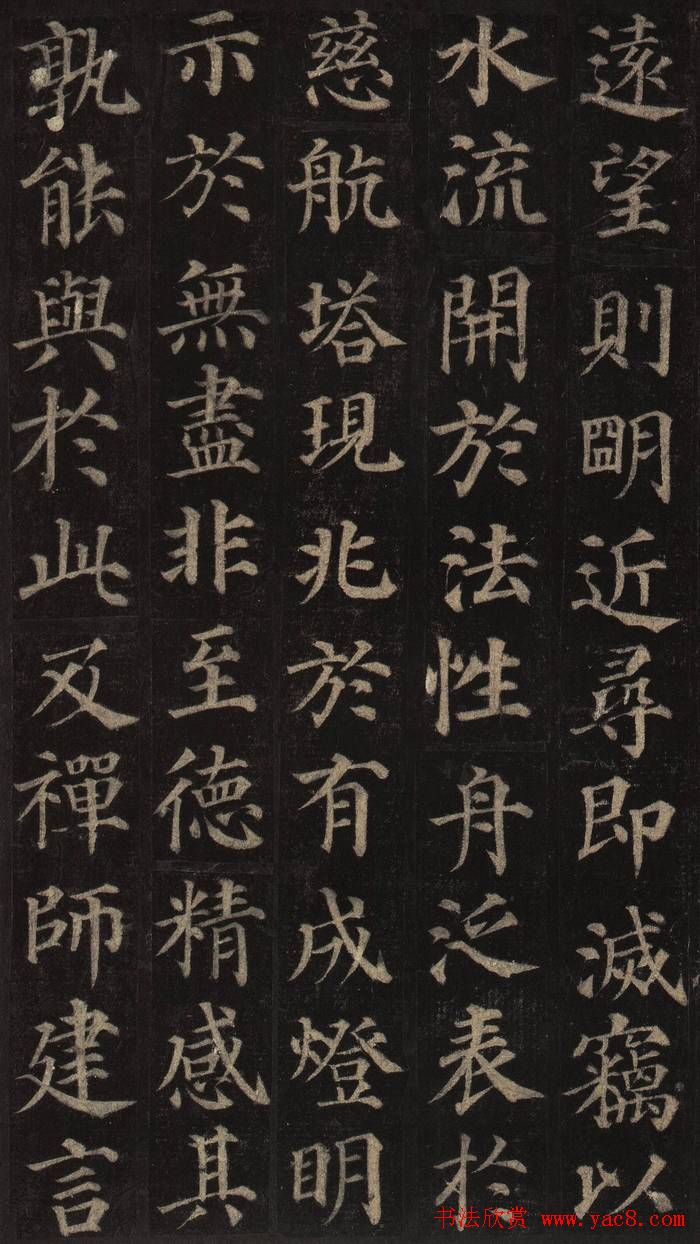 遠望則明近尋即滅竊以
水流開於法性舟泛表於
慈航塔現兆於有成燈明
示於無盡非至德精感其
孰能與於此及禪師建言
书法欣赏 www.yac8.com